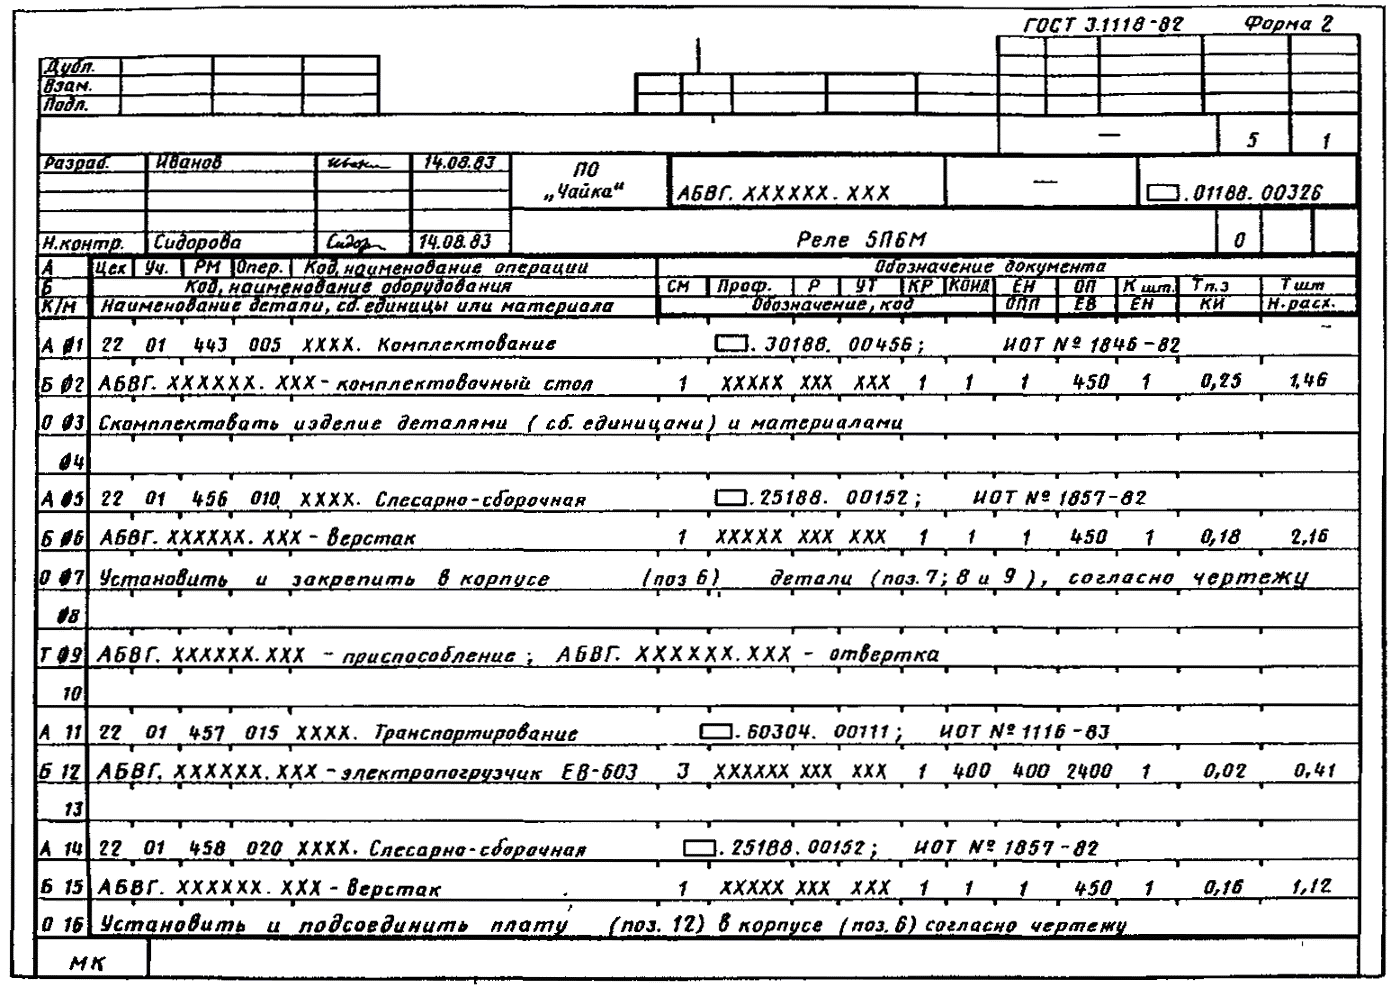 ГОСТ 3.1118-82 Форма 2
Дубл.
Взам.
Подл.
— 5 1
Разраб. Иванов 14.08.83 ПО „Чайка“ АБВГ. XXXXXX. XXX — .01188. 00326
Н.контр. Сидорова Сидор 14.08.83 Реле 5П6М 0
А Цех Уч. РМ Опер. Код, наименование операции Обозначение документа
Б Код, наименование оборудования СМ Проф. Р УТ КР КОИД ЕН ОП К шт. Тп.з Тшт
К/М Наименование детали, сб. единицы или материала Обозначение, код ОПП ЕВ ЕН КИ Н. расх.
А 01 22 01 443 005 XXXX. Комплектование . 30188. 00456; ИОТ № 1846-82
Б 02 АБВГ. XXXXXX. XXX - комплектовочный стол 1 XXXXX XXX XXX 1 1 1 450 1 0,25 1,46
О 03 Скомплектовать изделие деталями (сб. единицами) и материалами
04
А 05 22 01 456 010 XXXX. Слесарно-сборочная . 25188. 00152; ИОТ № 1857-82
Б 06 АБВГ. XXXXXX. XXX - верстак 1 XXXXX XXX XXX 1 1 1 450 1 0,18 2,16
О 07 Установить и закрепить в корпусе (поз 6) детали (поз. 7; 8 и 9), согласно чертежу
08
Т 09 АБВГ. XXXXXX. XXX - приспособление; АБВГ. XXXXXX. XXX - отвертка
10
А 11 22 01 457 015 XXXX. Транспортирование . 60304. 00111; ИОТ № 1116-83
Б 12 АБВГ. XXXXXX. XXX - электропогрузчик ЕВ-603 3 XXXXXX XXX XXX 1 400 400 2400 1 0,02 0,41
13
А 14 22 01 458 020 XXXX. Слесарно-сборочная . 25188. 00152; ИОТ № 1857-82
Б 15 АБВГ. XXXXXX. XXX - верстак 1 XXXXX XXX XXX 1 1 1 450 1 0,16 1,12
О 16 Установить и подсоединить плату (поз. 12) в корпусе (поз. 6) согласно чертежу
МК